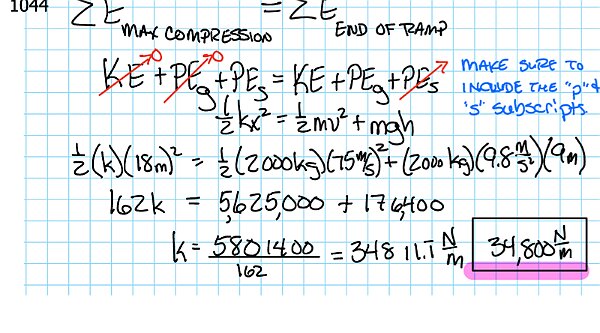 1044
ΣE MAX COMPRESSION = ΣE END OF RAMP
KE→0 + PEg→0 + PEs = KE + PEg + PEs
MAKE SURE TO
INCLUDE THE "p" &
"s" subscripts.
½kx² = ½mv² + mgh
½(k)(18m)² = ½(2000kg)(75m/s)² + (2000kg)(9.8m/s²)(9m)
162k = 5,625,000 + 176,400
k = 5801400/162 = 34811.1 N/m 34,800 N/m